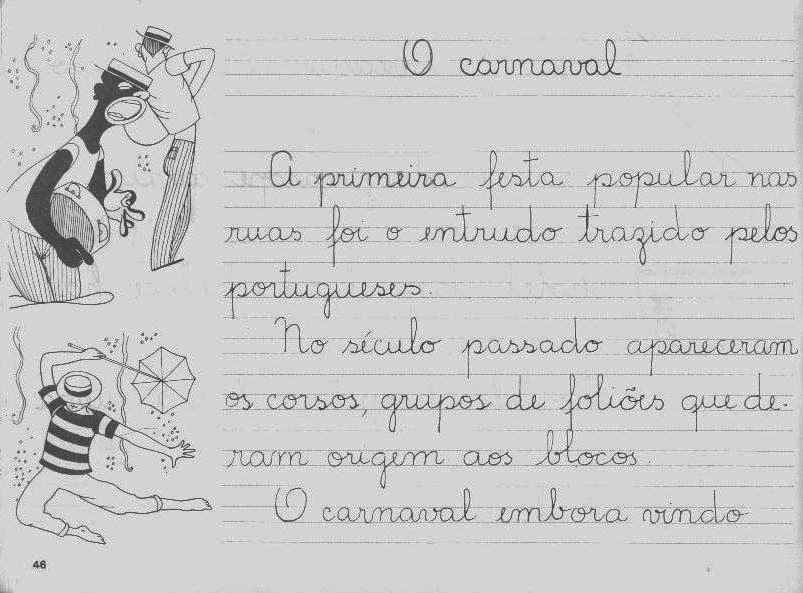 O carnaval
A primeira festa popular nas
ruas foi o entrudo trazido pelos
portugueses.
No século passado apareceram
os corsos, grupos de foliões que de-
ram origem aos blocos.
O carnaval embora vindo
46